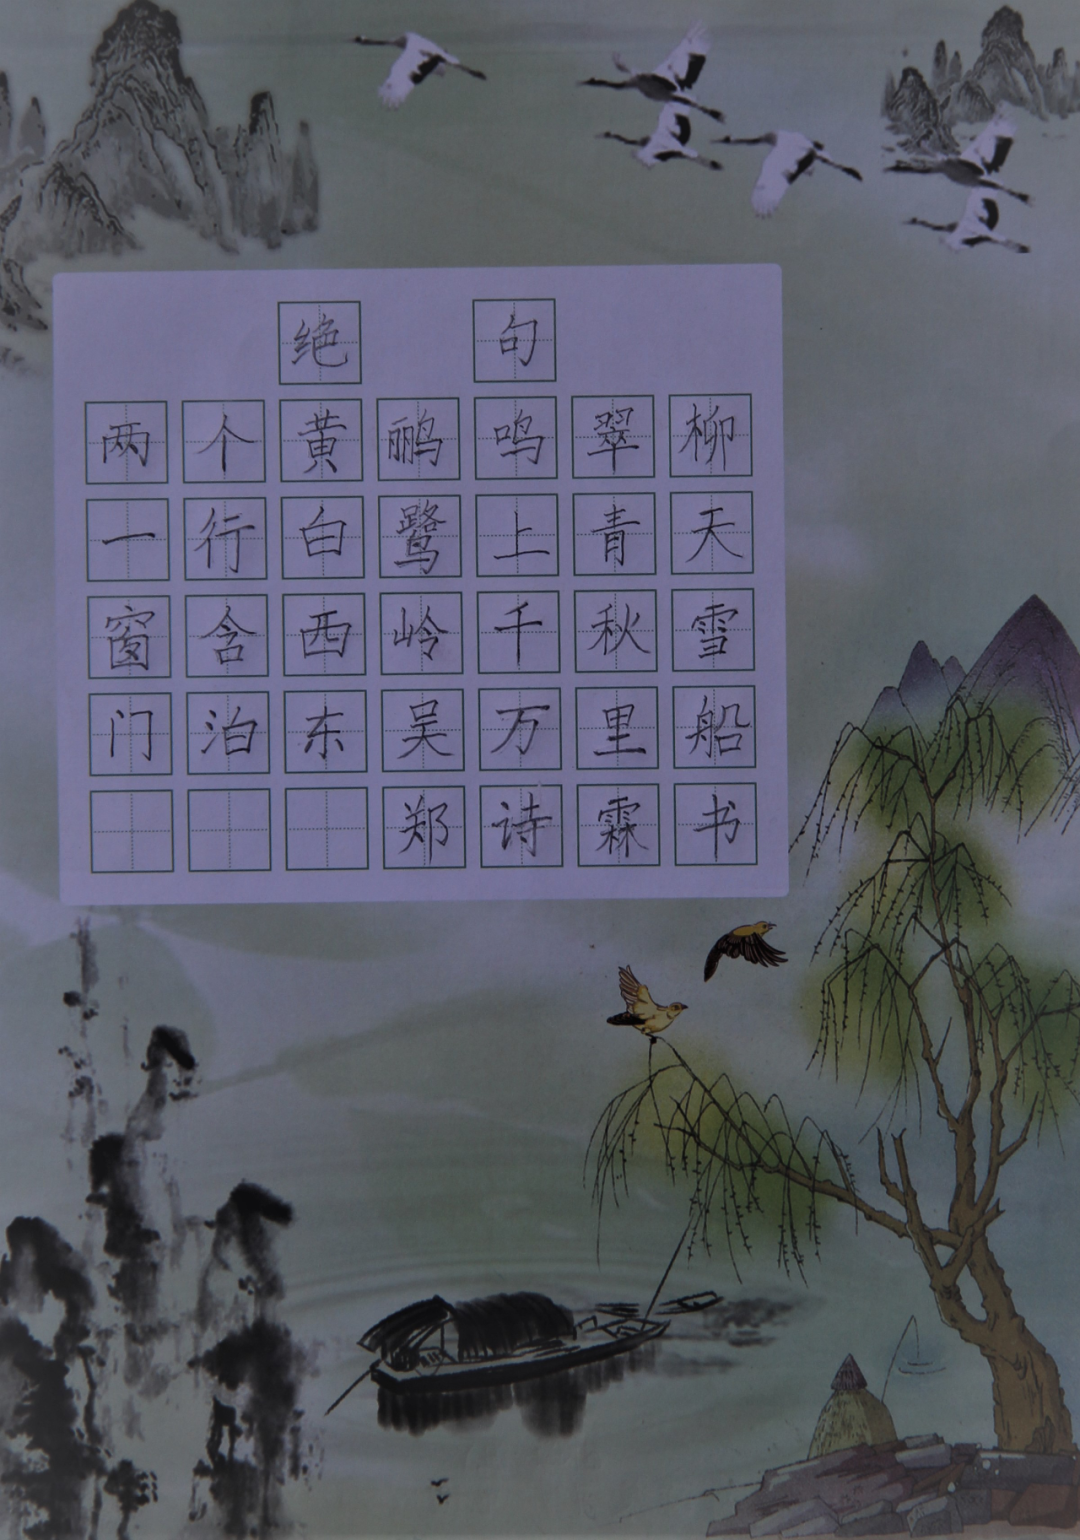 绝句
两个黄鹂鸣翠柳
一行白鹭上青天
窗含西岭千秋雪
门泊东吴万里船
郑诗霖书